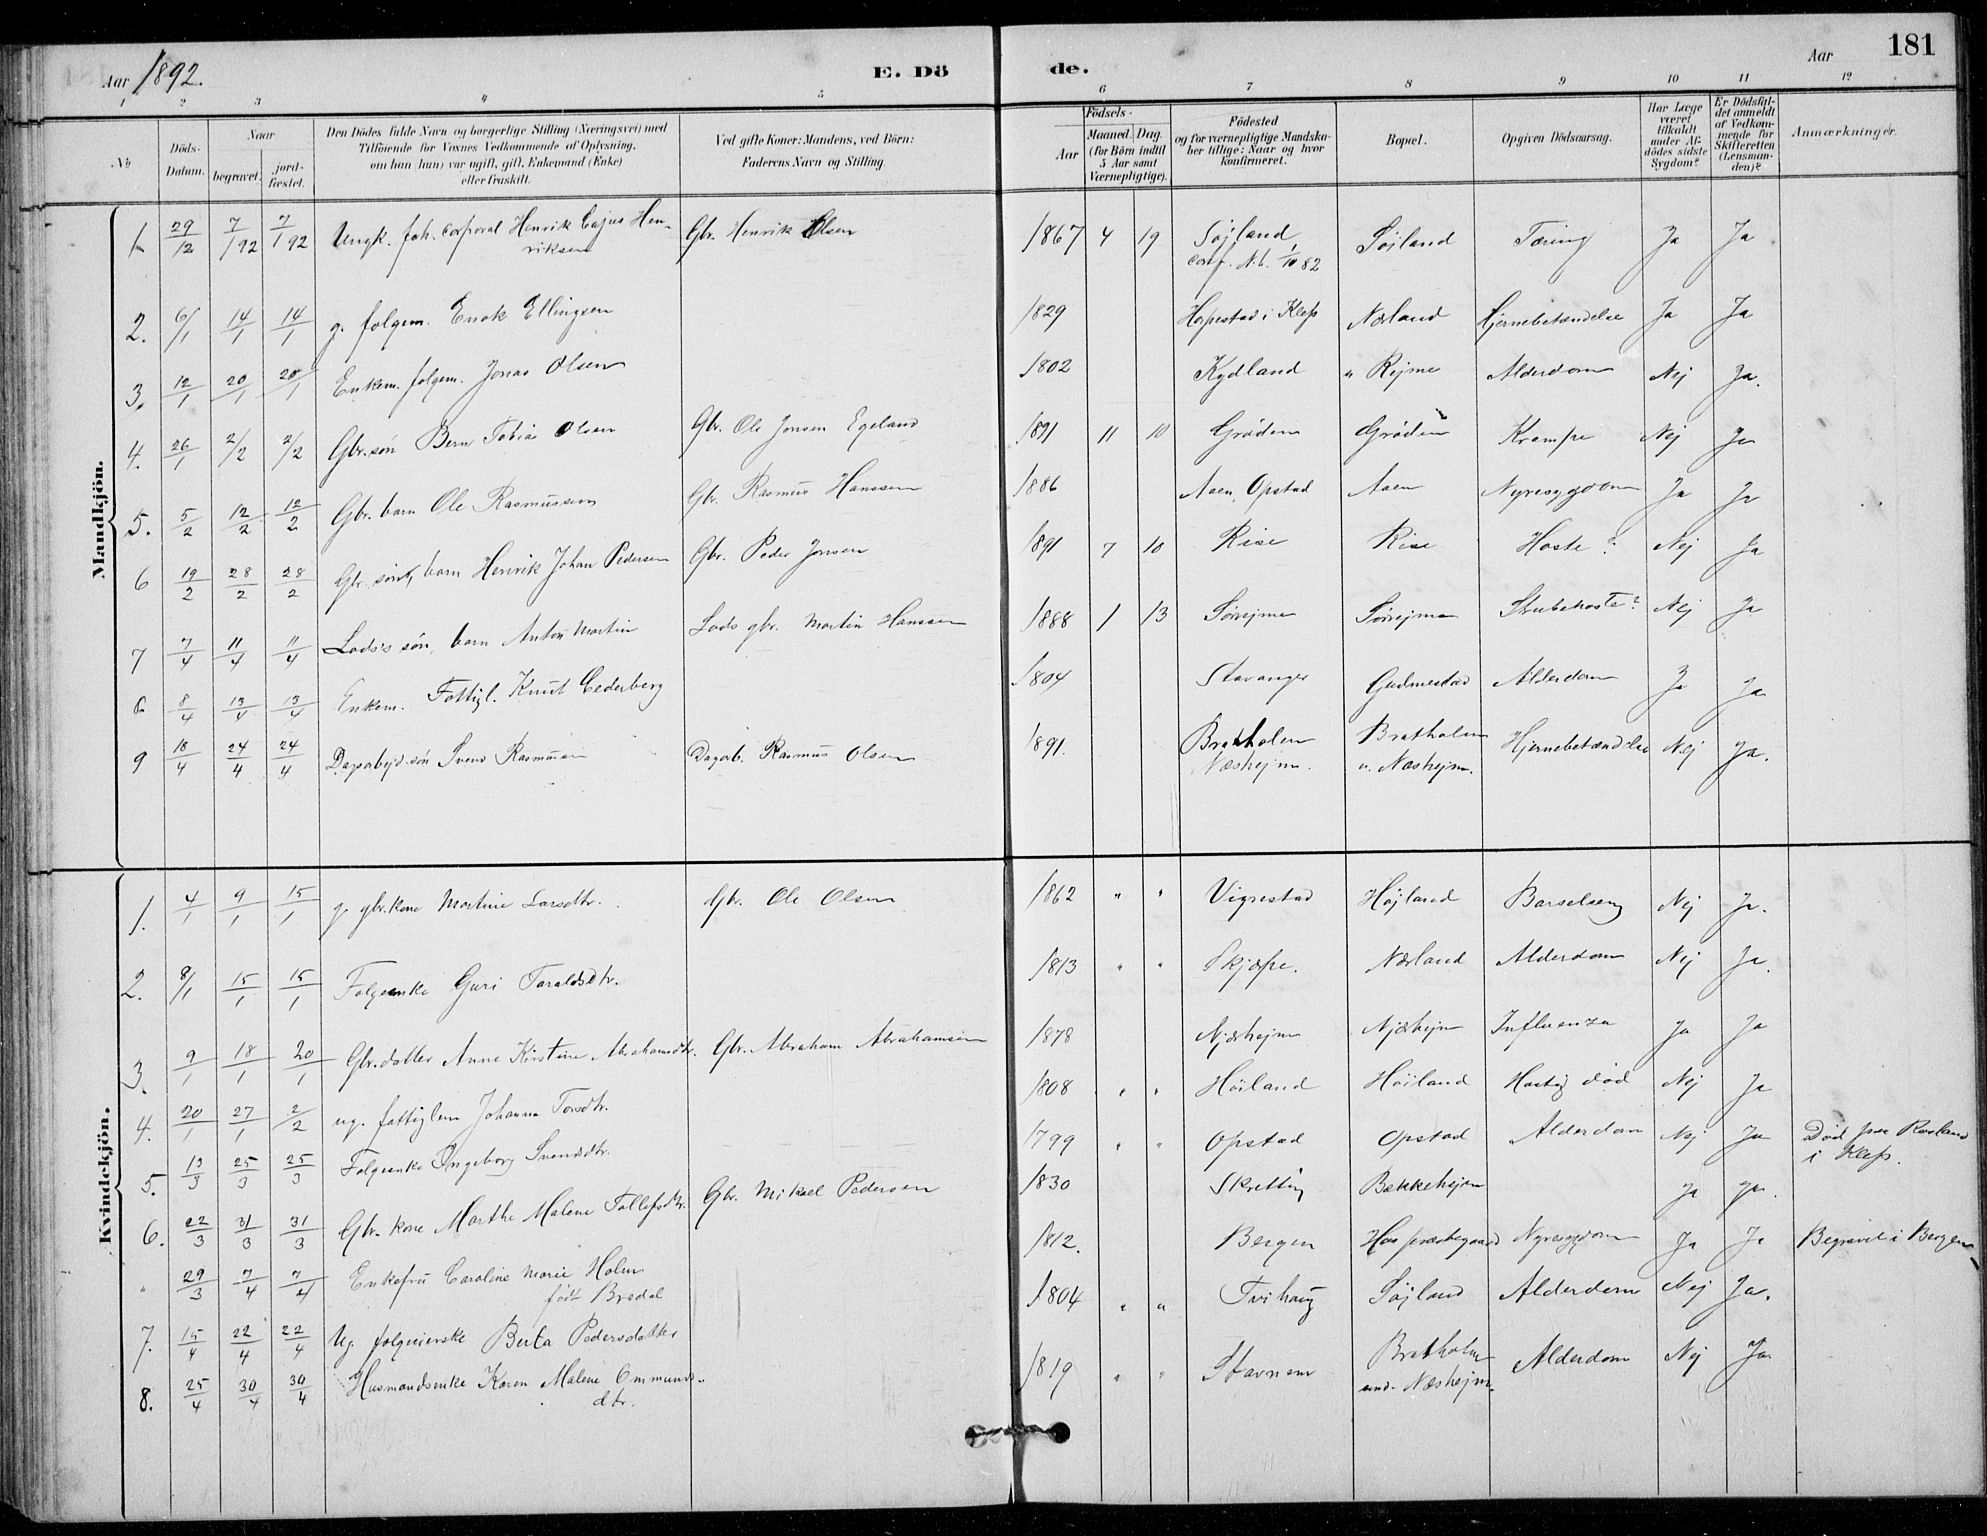 Aar 1892. E. Dö de. Aar 181
1 2 3 4 5 6 7 8 9 10 11 12
No | Döds-Datum. | Naar begravet. | jord-fæstet. | Den Dödes fulde Navn og borgerlige Stilling (Næringsvei) med Tilföiende for Voxnes Vedkommende af Oplysning, om han (hun) var ugift, gift, Enkemand (Enke) eller fraskilt. | Ved gifte Koner: Mandens, ved Börn: Faderens Navn og Stilling. | Födsels- Aar | Maaned. Dag. (for Börn indtil 5 Aar samt Værnepligtige). | Födested og for værnepligtige Mandskaber tillige: Naar og hvor konfirmeret. | Bopæl. | Opgiven Dödsaarsag. | Har Læge været tilkaldt under Afdödes sidste Sygdom? | Er Dödsfaldet anmeldt af Vedkommende for Skifteretten (Lensmanden)? | Anmærkninger.
Mandkjön.
1. 29/12 7/1 92 7/1 92 Ungk. fah. corporal Henrik Cajus Hen- Gbr. Henrik Olsen 1867 4 19 Søjland, Søiland Tæring Ja Ja
riksen conf. N.b. 1/10 82
2. 6/1 14/1 14/1 g. folgem. Enok Ellingsen 1829 Horpestad i Klep Nærland Hjernebetændelse Ja Ja
3. 12/1 20/1 20/1 Enkem. folgem. Jonas Olsen 1802 Kydland " Rejme Alderdom Nej Ja.
4. 26/1 2/2 2/2 Gbr. søn Bern Tobias Olsen Gbr. Ole Jonsen Egeland 1891 11 10 Grødem Grødem Krampe Nej Ja
5. 5/2 12/2 12/2 Gbr. barn Ole Rasmussen Gbr. Rasmus Hanssen 1886 Aaen, Opstad Aaen Nyresygdom Ja Ja
6 19/2 28/2 28/2 Gbr. søn, barn Henrik Johan Pedersen Gbr. Peder Jonsen 1891 7 10 Rise Rise Hoste? Nej Ja
7 7/4 11/4 11/4 Lods's søn, barn Anton Martin Lods gbr. Martin Hanssen 1888 1 13 Sørejme Sørejme Strubehoste? Nej Ja
8 8/4 13/4 13/4 Enkem. Fattigl. Knut Cederberg 1804 Stavanger Gudmestad Alderdom Ja Ja
9 18/4 24/4 24/4 Dagarbejd. søn Svend Rasmussen Dagarb. Rasmus Olsen 1891. Bratholen Bratholen Hjernebetændelse Nej Ja.
Næshejm. u. Næshejm.
Kvindekjön.
1. 4/1 9/1 15/1 g. gbr.kone Martine Larsdtr. Gbr. Ole Olsen 1862 " " Vigrestad Højland Barselseng Nej Ja.
2. 8/1 15/1 15/1 Folgeenke Guri Taraldsdtr. 1813 " " Skjæpe. Nærland Alderdom Nej Ja.
3. 9/1 18/1 20/1 Gbr. datter Anne Kirstine Abrahamsdtr. Gbr. Abraham Abrahamsen 1878 Njærhejm Njærhejm Influenza Ja Ja
4. 20/1 27/1 2/2 ug. fattiglem Johanna Torsdtr. 1808 " " Høiland Høiland Hastig død Nej Ja
5. 13/3 25/3 25/3 Folgeenke Ingeborg Svendsdtr. 1799 " " Opstad Opstad Alderdom Nej Ja Død paa
i Klep.
6. 22/3 31/3 31/3 Gbr. kone Marthe Malene Tollefsdtr. Gbr. Mikael Pedersen 1830 Skretting Bækkehejen Ja Ja.
" 29/3 7/4 7/4 Enkefru Caroline Marie Holm 1812. Bergen Haa præstegaard Nyresygdom Ja Ja Begravet i Bergen
født Bredal
7. 15/4 22/4 22/4 Ug. folgeierske Berta Pedersdatter 1804 " " Tvihaug Søjland Alderdom Nej Ja.
8. 25/4 30/4 30/4 Husmandsenke Karen Malene Ommunds- 1819 " " Stavnem Bratholen Alderdom Nej Ja.
dtr. und. Næshejm.